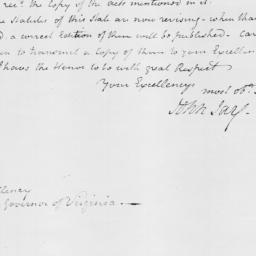 rec.d the Copy of the acts mentioned in it.
e Statutes of this State are now revising - when that
d a correct Edition of them will be published. Car
en to transmit a Copy of them to your Excellen
I have the Honor to be with great Respect
Your Excellency's most ob.t
John Jay.
llency
Governor of Virginia